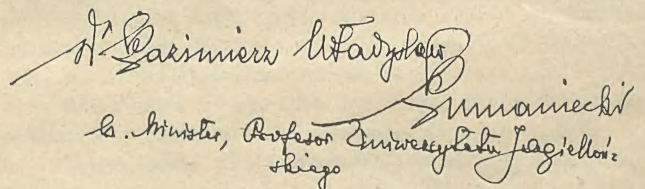 Dr Kazimierz Władysław
Kumaniecki
b. Minister, Profesor Uniwersytetu Jagielloń=
skiego